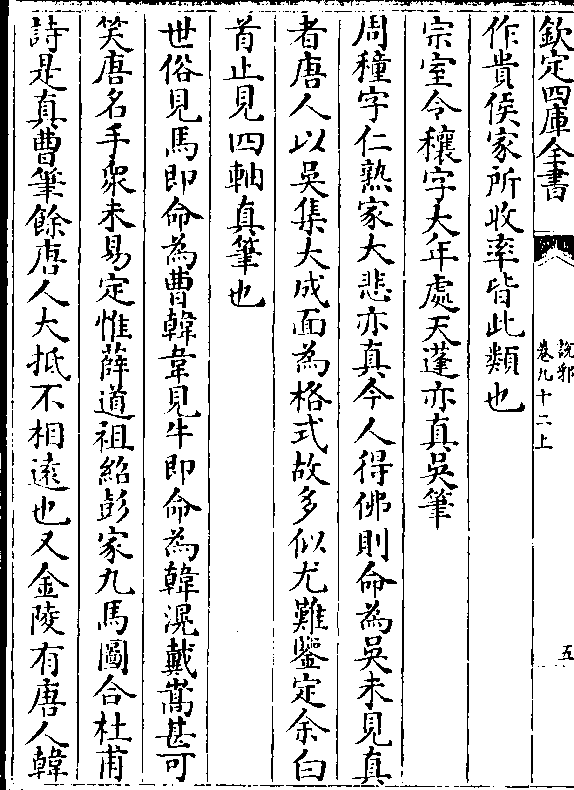 欽定四庫全書
說郛
卷九十二上
五
作貴侯家所收率皆此類也
宗室令穰字大年處天蓬亦真吳筆
周穜字仁熟家大悲亦真今人得佛則命為吳未見真
者唐人以吳集大成面為格式故多似尤難鑒定余白
首止見四軸真筆也
世俗見馬即命為曹韓韋見牛即命為韓滉戴嵩甚可
笑唐名手衆未易定惟薛道祖紹彭家九馬圖合杜甫
詩是真曹筆餘唐人大抵不相遠也又金陵有唐人韓